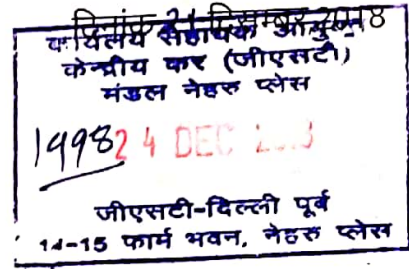 दिनांक 21 दिसम्बर 2018
कार्यालय सहायक आयुक्त
केन्द्रीय कर (जीएसटी)
मंडल नेहरु प्लेस
1998 24 DEC
जीएसटी-दिल्ली पूर्व
14-15 फार्म भवन, नेहरु प्लेस